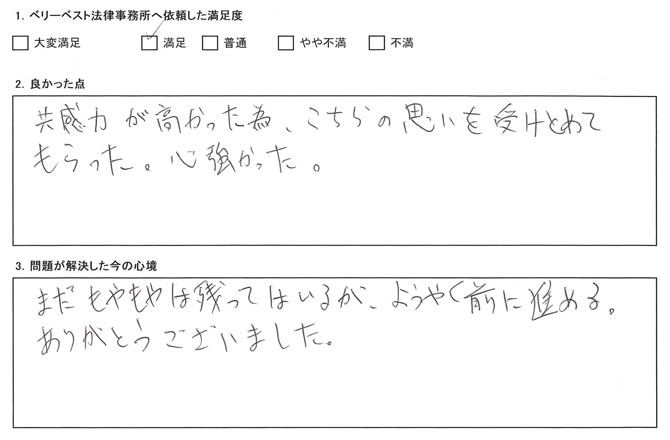 1. ベリーベスト法律事務所へ依頼した満足度
□ 大変満足 ☑ 満足 □ 普通 □ やや不満 □ 不満
2. 良かった点
共感力が高かった為、こちらの思いを受けとめて
もらった。心強かった。
3. 問題が解決した今の心境
まだもやもやは残ってはいるが、ようやく前に進める。
ありがとうございました。